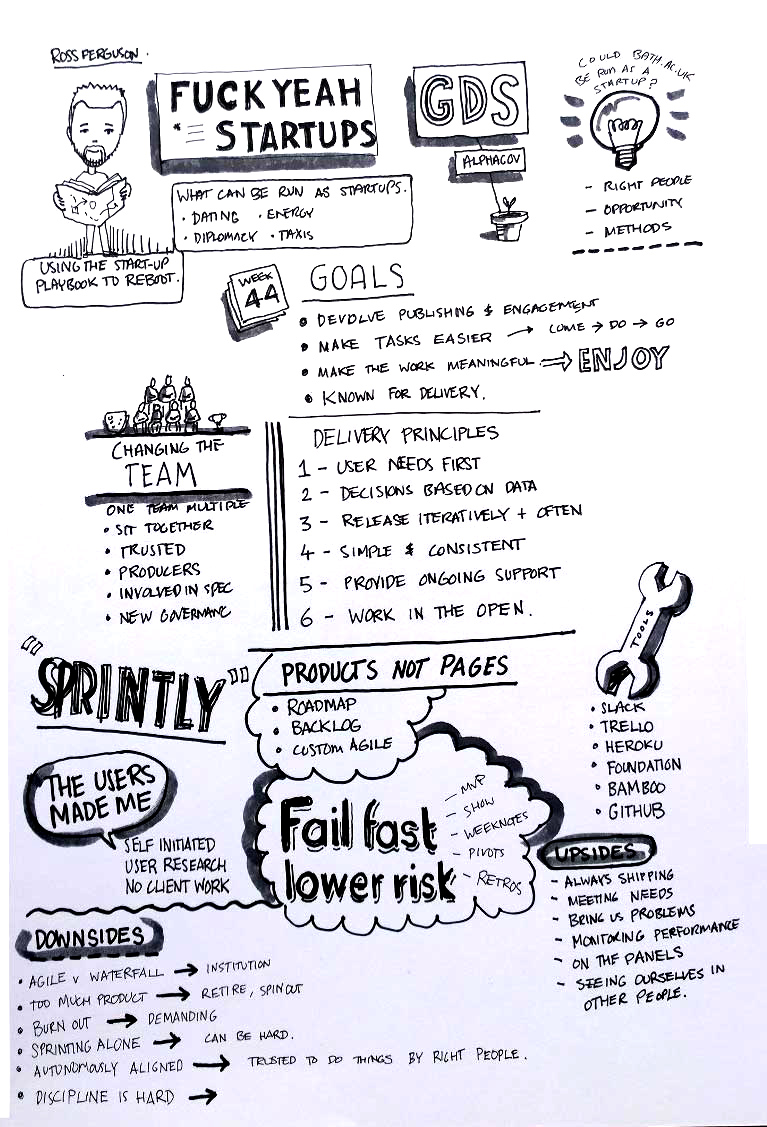 ROSS FERGUSON.
FUCK YEAH
STARTUPS
GDS
ALPHAGOV
COULD BATH.AC.UK
BE RUN AS A
STARTUP?
- RIGHT PEOPLE
- OPPORTUNITY
- METHODS
WHAT CAN BE RUN AS STARTUPS.
• DATING • ENERGY
• DIPLOMACY • TAXIS
USING THE START-UP
PLAYBOOK TO REBOOT.
WEEK
44
GOALS
• DEVOLVE PUBLISHING & ENGAGEMENT
• MAKE TASKS EASIER → COME → DO → GO
• MAKE THE WORK MEANINGFUL ⇒ ENJOY
• KNOWN FOR DELIVERY.
CHANGING THE
TEAM
ONE TEAM MULTIPLE
• SIT TOGETHER
• TRUSTED
• PRODUCERS
• INVOLVED IN SPEC
• NEW GOVERNANC
DELIVERY PRINCIPLES
1 - USER NEEDS FIRST
2 - DECISIONS BASED ON DATA
3 - RELEASE ITERATIVELY + OFTEN
4 - SIMPLE & CONSISTENT
5 - PROVIDE ONGOING SUPPORT
6 - WORK IN THE OPEN.
TOOLS
• SLACK
• TRELLO
• HEROKU
• FOUNDATION
• BAMBOO
• GITHUB
"SPRINTLY"
PRODUCTS NOT PAGES
• ROADMAP
• BACKLOG
• CUSTOM AGILE
THE USERS
MADE ME
SELF INITIATED
USER RESEARCH
NO CLIENT WORK
Fail fast
lower risk
- MVP
- SHOW
- WEEKNOTES
- PIVOTS
- RETROS
UPSIDES
- ALWAYS SHIPPING
- MEETING NEEDS
- BRING US PROBLEMS
- MONITORING PERFORMANCE
- ON THE PANELS
- SEEING OURSELVES IN
OTHER PEOPLE.
DOWNSIDES
• AGILE v WATERFALL → INSTITUTION
• TOO MUCH PRODUCT → RETIRE, SPINOUT
• BURN OUT → DEMANDING
• SPRINTING ALONE → CAN BE HARD.
• AUTONOMOUSLY ALIGNED → TRUSTED TO DO THINGS BY RIGHT PEOPLE.
• DISCIPLINE IS HARD →